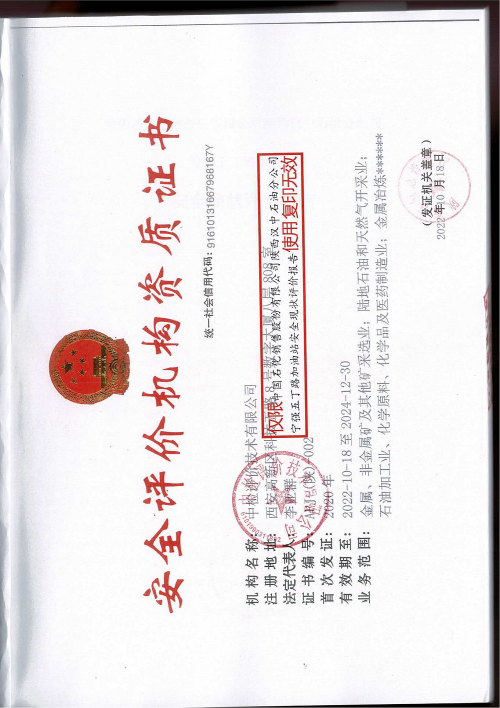 安全评价机构资质证书
统一社会信用代码：91610131667968167Y
机构名称：中检评价技术有限公司
注册地址：西安高新区科技路8号数字大厦八层808室
法定代表人：李亚群
证书编号：(陕)-002
首次发证：2020年
有效期至：2022-10-18至2024-12-30
业务范围：金属、非金属矿及其他矿采选业；陆地石油和天然气开采业；
石油加工业、化学原料、化学品及医药制造业；金属冶炼******
仅限中国石化销售股份有限公司陕西汉中石油分公司
宁强五丁路加油站安全现状评价报告使用复印无效
（发证机关盖章）
2022年10月18日